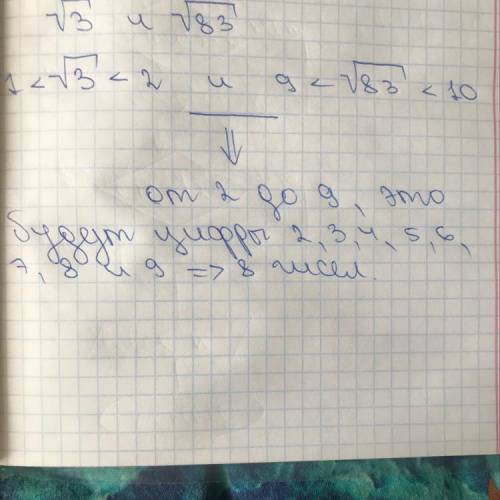 √3 и √83
1 < √3 < 2 и 9 < √83 < 10
⇓
от 2 до 9, это
будут цифры 2, 3, 4, 5, 6,
7, 8 и 9 => 8 чисел.